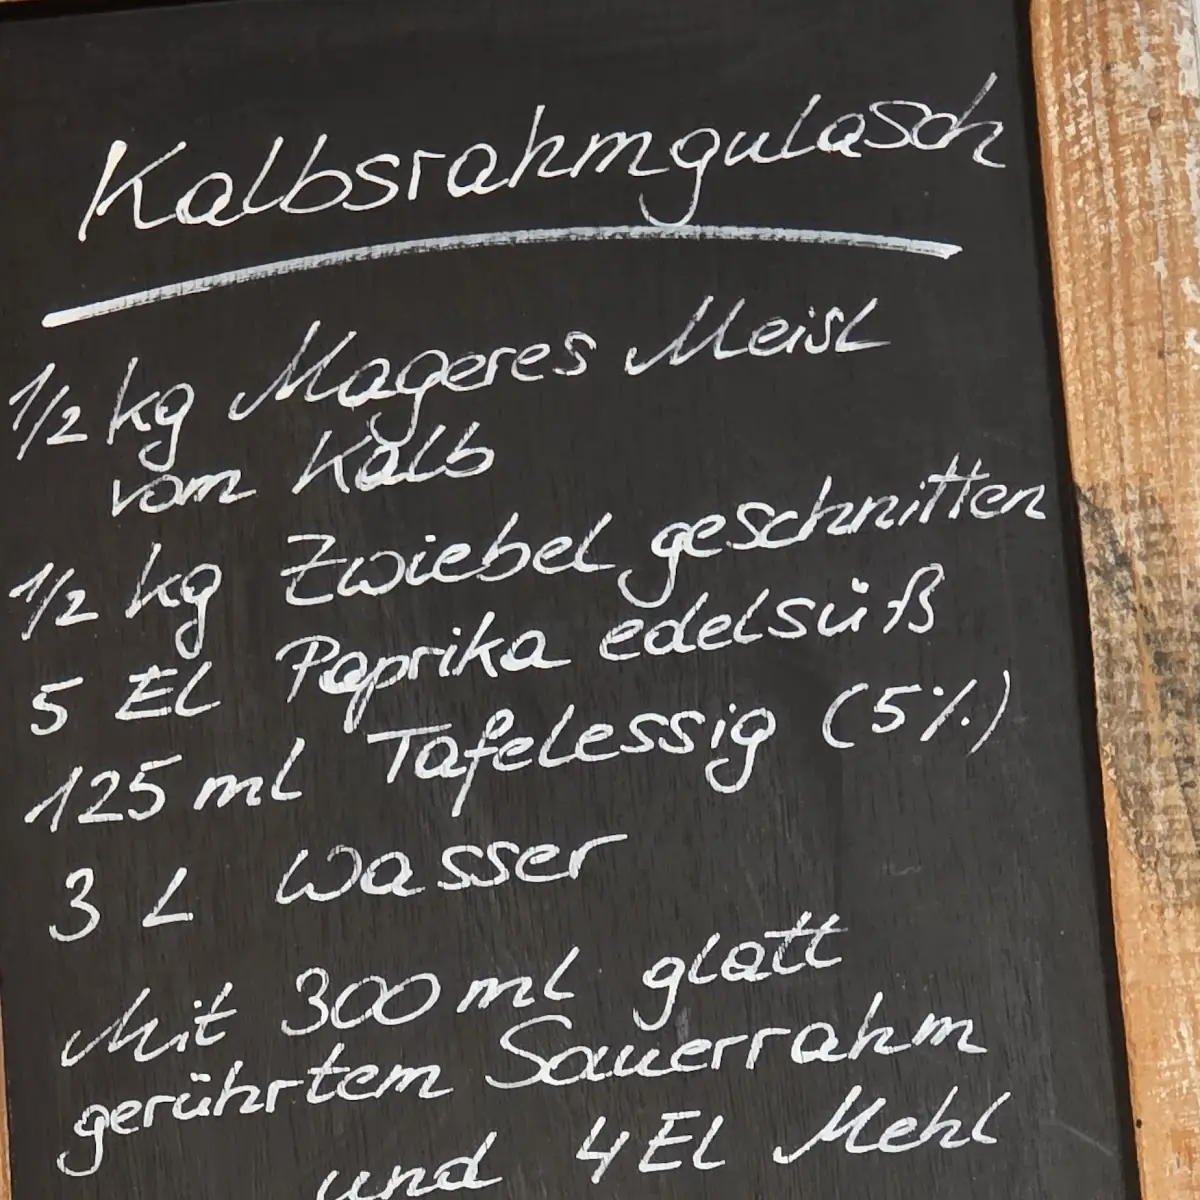 Kalbsrahmgulasch
1/2 kg Mageres Meisl
vom Kalb
1/2 kg Zwiebel geschnitten
5 El Paprika edelsüß
125 ml Tafelessig (5%)
3 L Wasser
Mit 300 ml glatt
gerührtem Sauerrahm
und 4 El Mehl